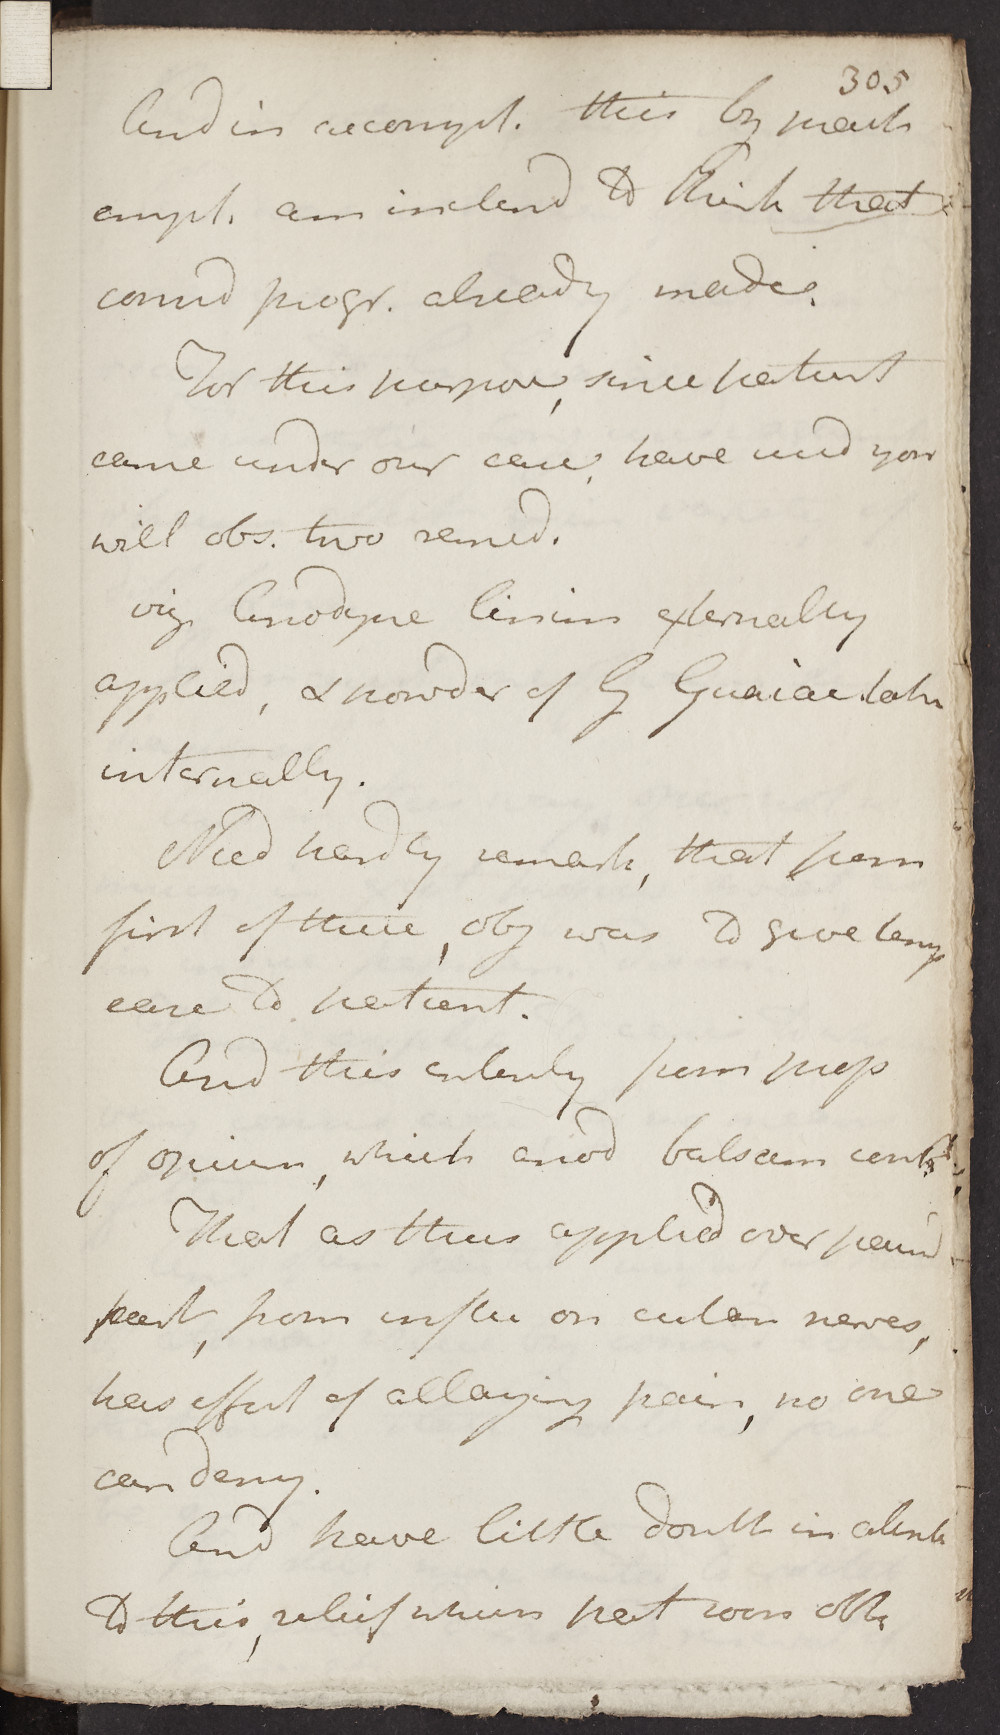 305
And in accompt. this by means
empl. am inclend to think that
consid progr. already made.
For this purpose, since patient
came under our care, have used you
will obs. two remed.
viz Anodyne linim externally
applied, & powder of G Guaiac tak
internally.
Need hardly remark, that from
first of these, obj was to give temp
ease to patient.
And this entirely from prep
of opium, which anod balsam cont
That as thus applied over pain'd
part, from influ on cutan nerves,
has effect of allaying pain, no one
can deny.
And have little doubt in attrib
to this, relief which pat soon obt